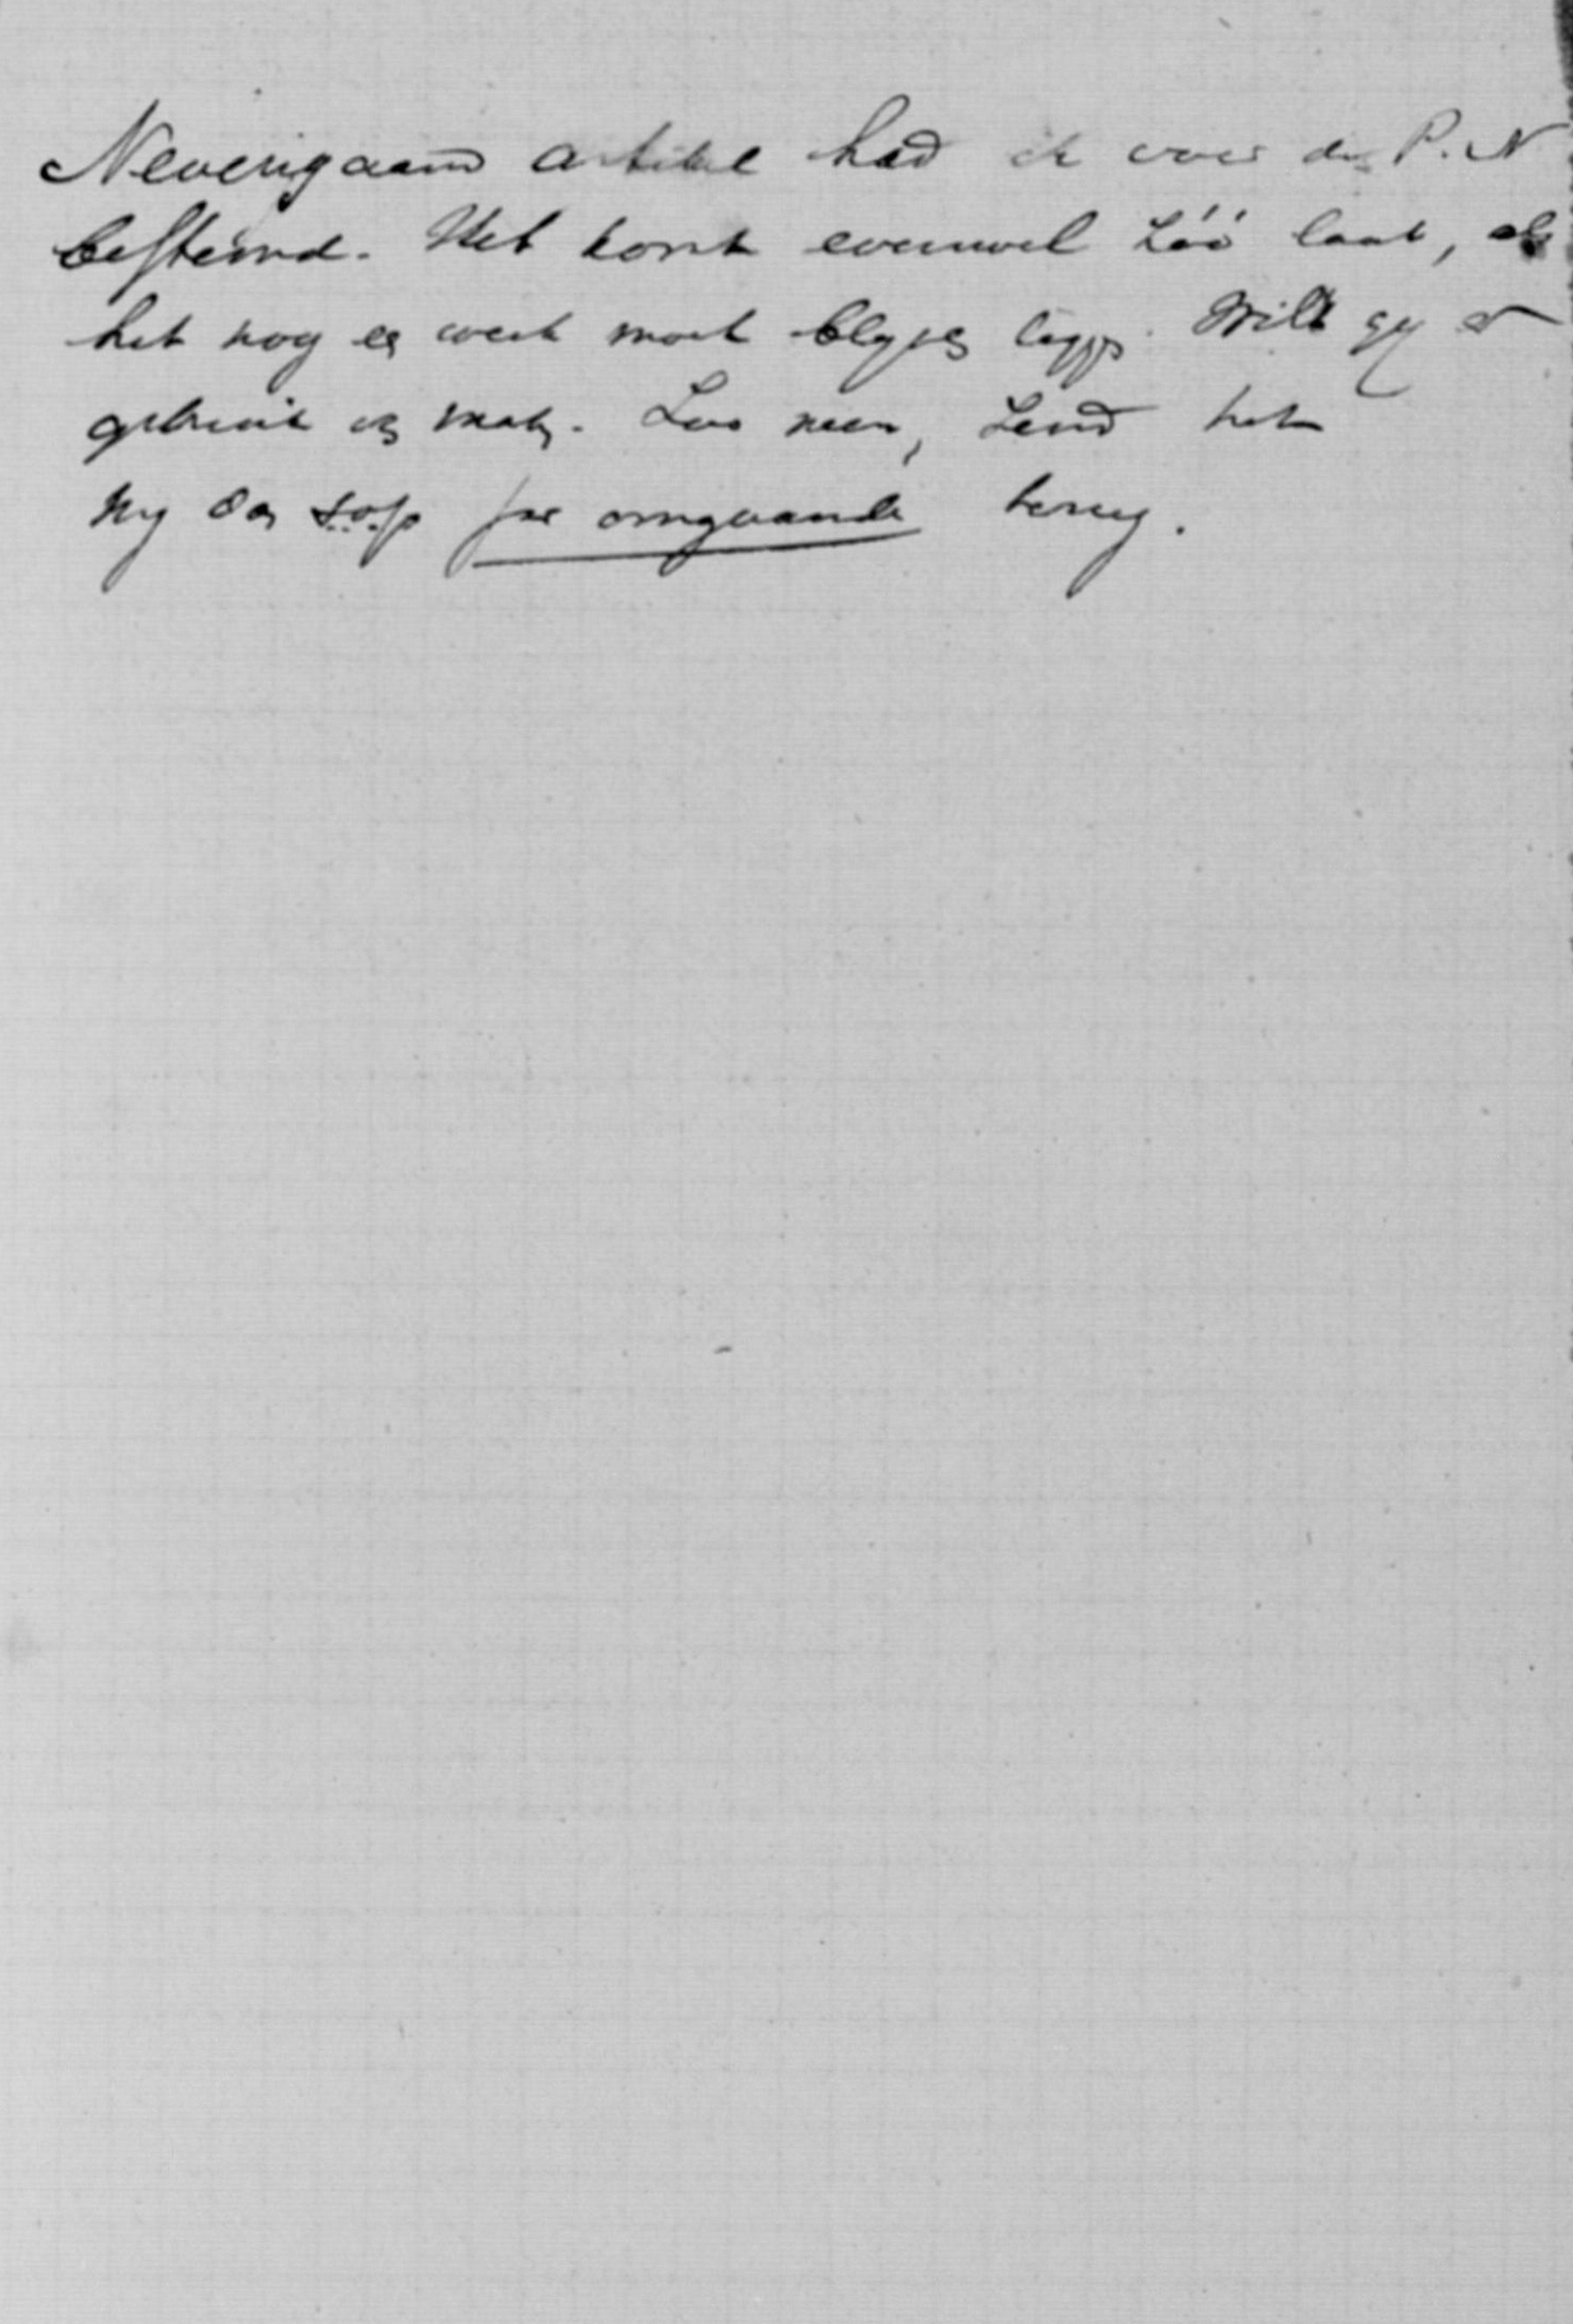 Nevensgaand artikel had ik voor de P. N
bestemd. Het komt evenwel zóó laat, als
het nog een week moet blyven liggen. Wilt gy er
gebruik van maken. Zoo neen, zend het
my dan s.v.p. per omgaande terug.